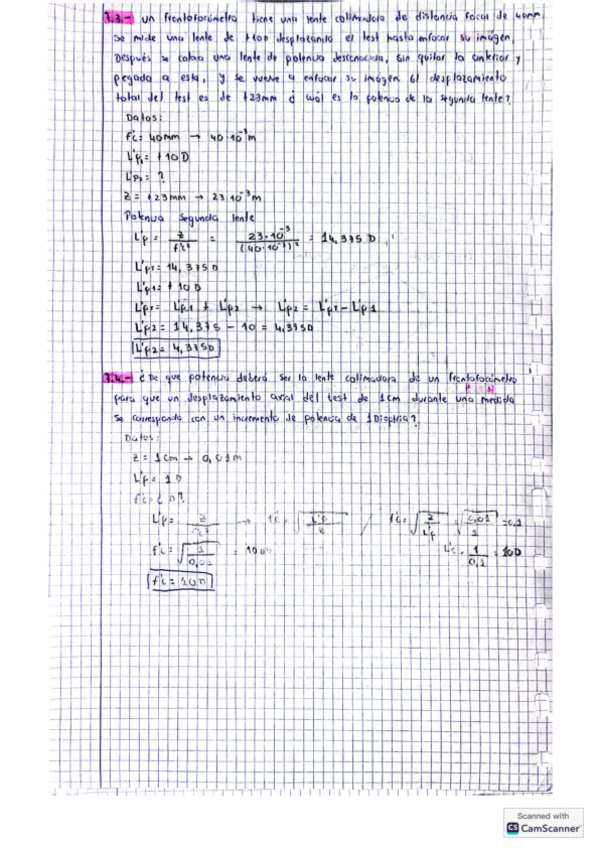 3.3.- un frontofocómetro tiene una lente colimadora de distancia focal de 40mm.
Se mide una lente de +10D desplazando el test hasta enfocar su imágen,
Después se coloca una lente de potencia desconocida, sin quitar la anterior y
pegada a esta, y se vuelve a enfocar su imágen. El desplazamiento
total del test es de +23mm ¿ cuál es la potencia de la segunda lente?
Datos:
f'c = 40mm → 40·10⁻³m
L'p₁ = +10D
L'p₂ = ?
z = +23mm → 23·10⁻³m
Potencia segunda lente
L'p = z / f'c² = 23·10⁻³ / (40·10⁻³)² = 14,375 D
L'pT = 14,375D
L'p1 = +10D
L'pT = L'p1 + L'p2 → L'p2 = L'pT - L'p1
L'p2 = 14,375 - 10 = 4,375D
L'p2 = 4,375D
3.4.- ¿De que potencia deberá ser la lente colimadora de un frontofocómetro
para que un desplazamiento axial del test de 1cm durante una medida
se corresponda con un incremento de potencia de 1Dioptría?
Datos:
z = 1cm → 0,01m
L'p = 1D
L'p = z / f'c² → f'c = √ L'p / z / f'c = √ z / L'p = √ 0,01 / 1 = 0,1
f'c = √ 1 / = 10 L'c = 1 / = 10D
f'c = 10D
Scanned with
CS CamScanner